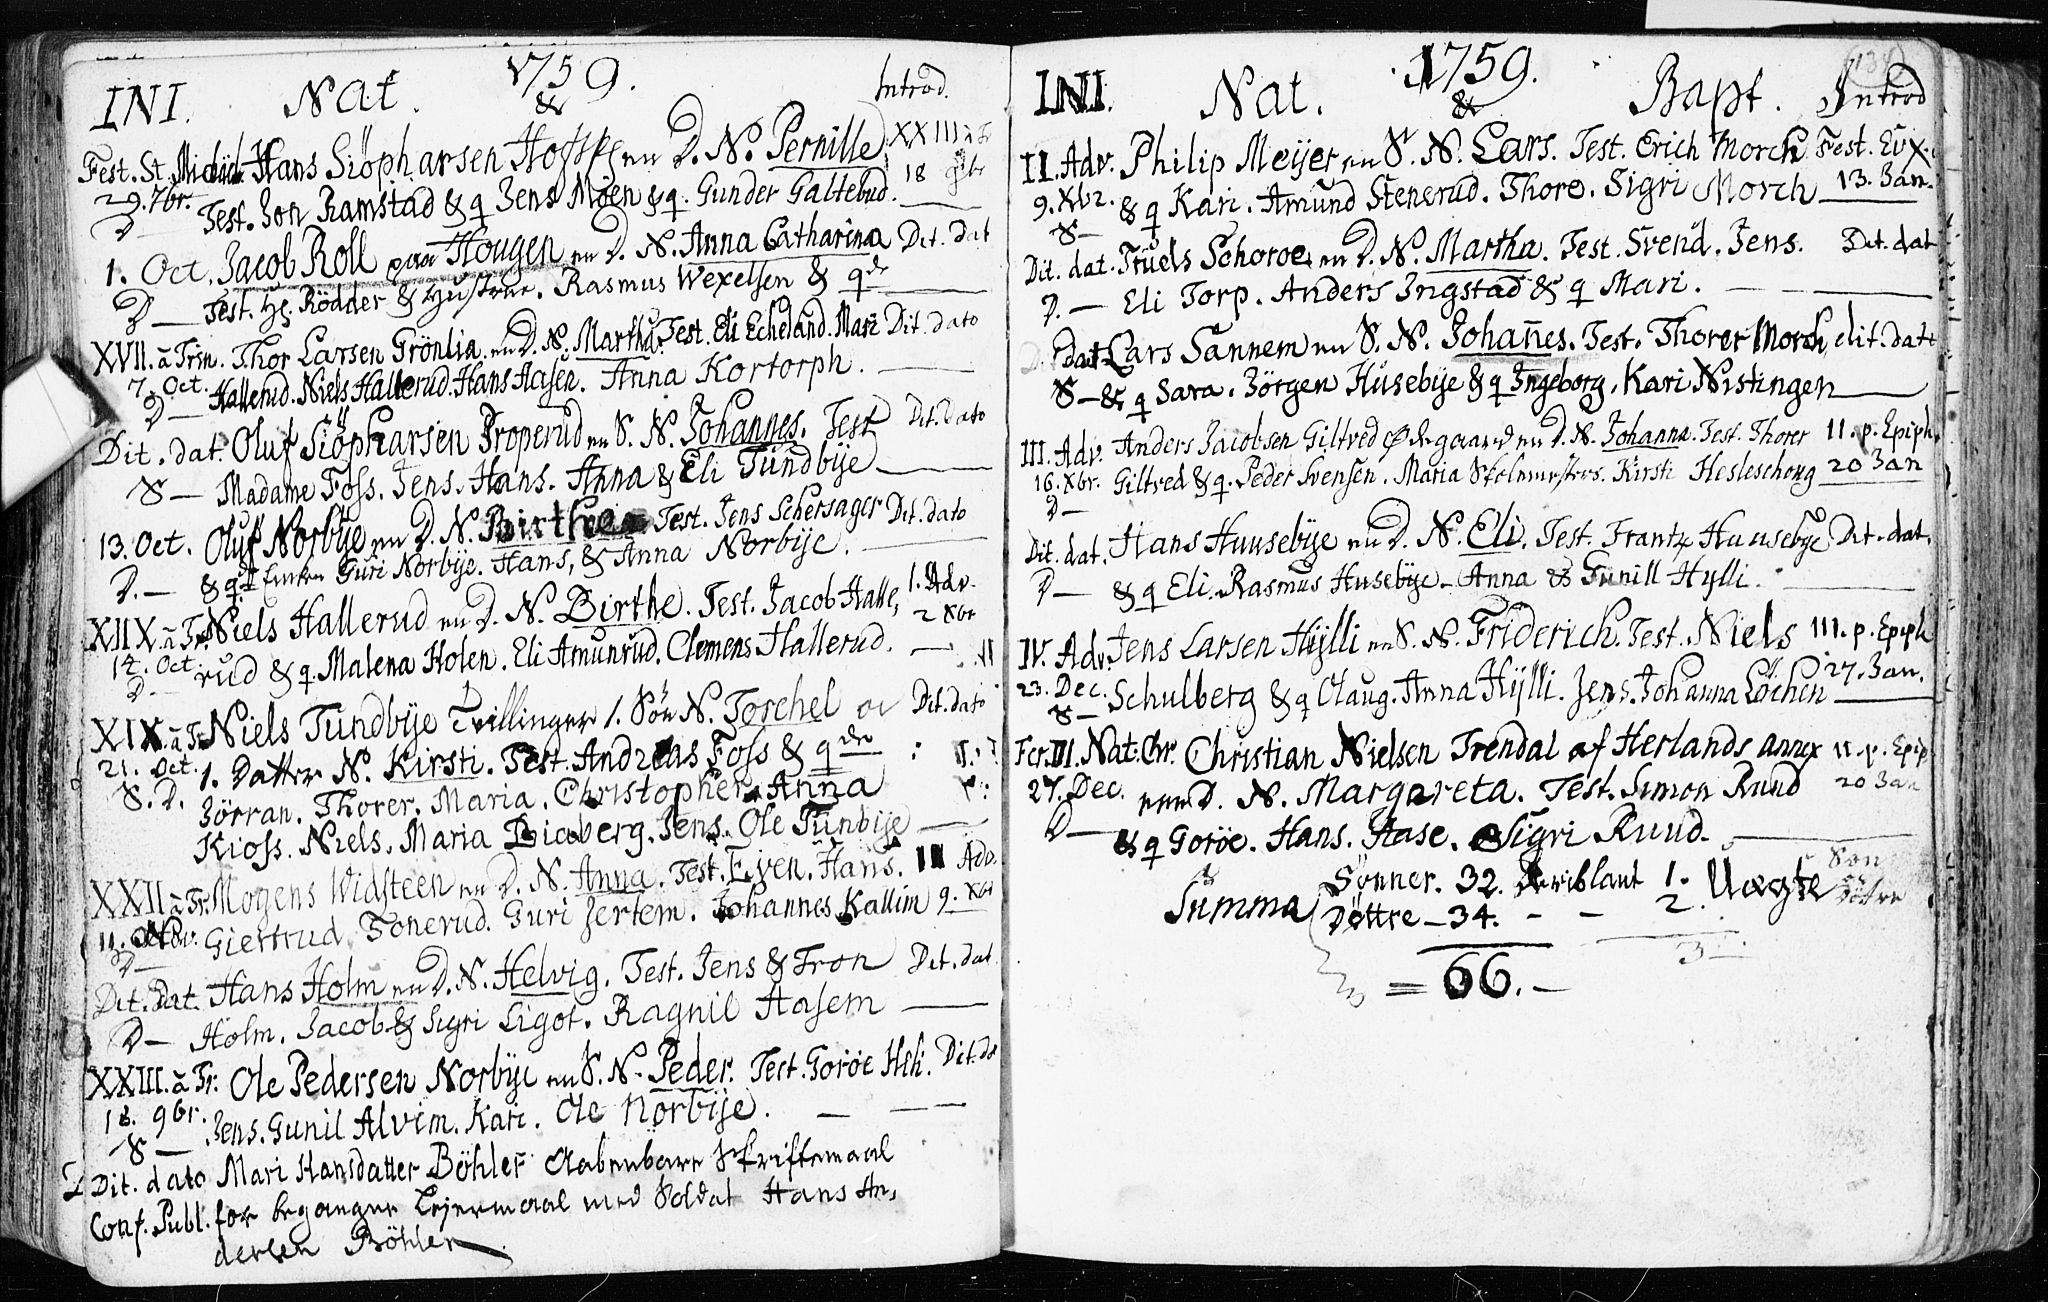 1759.
INI. Nat. & Introd.
Fest. St. Mich. Hans Siöpharsen en D. N. Pernille XXIII à Tr
29. 7br. Test. Jon Ramstad & q Jens Moen & q. Gunder Galtebud. 18 9br
D
1. Oct. Jacob Roll paa Hougen en D. N. Anna Catharina Dit. dat
D — Test. Hr. Rödder & Hustrue. Rasmus Wexelsen & qde
XVII. à Trin. Thor Larsen Grönlia en D. N. Martha. Test. Eli Echeland. Mari Dit. dato
7. Oct. Hallerud. Niels Hallerud. Hans Aasen. Anna Kortorph.
D —
Dit. dat. Oluf Siöpharsen Properud en S. N. Johannes. Test Dit. dato
S — Madame Foss. Jens. Hans. Anna & Eli Tundbÿe
13. Oct. Oluf Norbÿe en D. N. Birthe Test. Jens Schersager Dit. dato
D. — & q. Enken Guri Norbÿe. Hans, & Anna Norbÿe.
XIIX à Tr. Niels Hallerud en D. N. Birthe. Test. Jacob Halle, 1. Adv.
14. Oct. rud & q. Malena Holen. Eli Amunrud. Clemens Hallerud. 2 Xbr
D
XIX. à Tr. Niels Tundbÿe Tvillinger 1. Sön N. Torchel oc Dit. dato
21. Oct. 1. Datter N. Kirsti. Test. Andreas Foss & qde
S. D. Jörran. Thorer. Maria. Christopher. Anna
Kioss. Niels. Maria Bieberg. Jens. Ole Tunbÿe
XXII à Tr. Mogens Widsteen en D. N. Anna. Test. Even. Hans. II Adv.
11. Giertrud Fonerud. Guri Jertem. Johannes Kallim 9. Xbr
D —
Dit. dat. Hans Holm en D. N. Helvig. Test. Jens & Tron Dit. dat.
D — Holm. Jacob & Sigri Ligot. Ragnil Hasem
XXIII. à Tr. Ole Pedersen Norbÿe en S. N. Peder. Test. Goroe Dit. da
18. 9br. Jens. Gunil Alvim. Kari. Ole Norbÿe.
S —
Dit. dato Mari Hansdatter Böhler Aabenbare Skriftemaal
Conf. Publ. for begangne Lejermaal med Soldat Hans An,
dersen Böhler
1759.
INI. Nat. & Bapt. Introd
II. Adv. Philip Meÿer en S. N. Lars. Test. Erich Morch Fest. Ev X.
9. Xbr. & q Kari. Amund Stensrud. Thore. Sigri Morch 13. Jan.
S —
Dit. dat. Truels Schoroe en D. N. Martha. Test. Svend. Jens. Dit. dat
D. — Eli Torp. Anders Ingstad & q Mari.
D. dat Lars Sannem en S. N. Johannes. Test. Thorer Morch dit. dat
S — & q Sara. Jörgen Husebÿe & q Ingeborg. Kari Nistingen
III. Adv. Anders Jacobsen Giltred Ødegaard en D. N. Johanna. Test. Thorer 11. p. Epiph.
16. Xbr. Giltred & q. Peder Svensen. Maria Skolmesters. Kirsti Hesleschoug 20 Jan
D —
Dit. dat. Hans Huusebÿe en D. N. Eli. Test. Frantz Huusebÿe Dit. dat.
D — & q Eli. Rasmus Husebÿe. Anna & Gunill Hylli.
IV. Adv. Jens Larsen Hÿlli en S. N. Friderich. Test. Niels III. p. Epiph
23. Dec. Schulberg & q Olaug. Anna Hÿlli. Jens. Johanna Löchen 27. Jan.
S —
Fer. III. Nat. Chr. Christian Nielsen Trendal af Herlands annex II. p. Epip
27. Dec. en D. N. Margareta. Test. Simon Ruud 20 Jan
D — & q Goroe. Hans. Aase. Sigri Ruud.
Summa Sönner. 32. deriblant 1. Uægte Søn
Döttre — 34. - - 2. Döttre
3 —
= 66. —